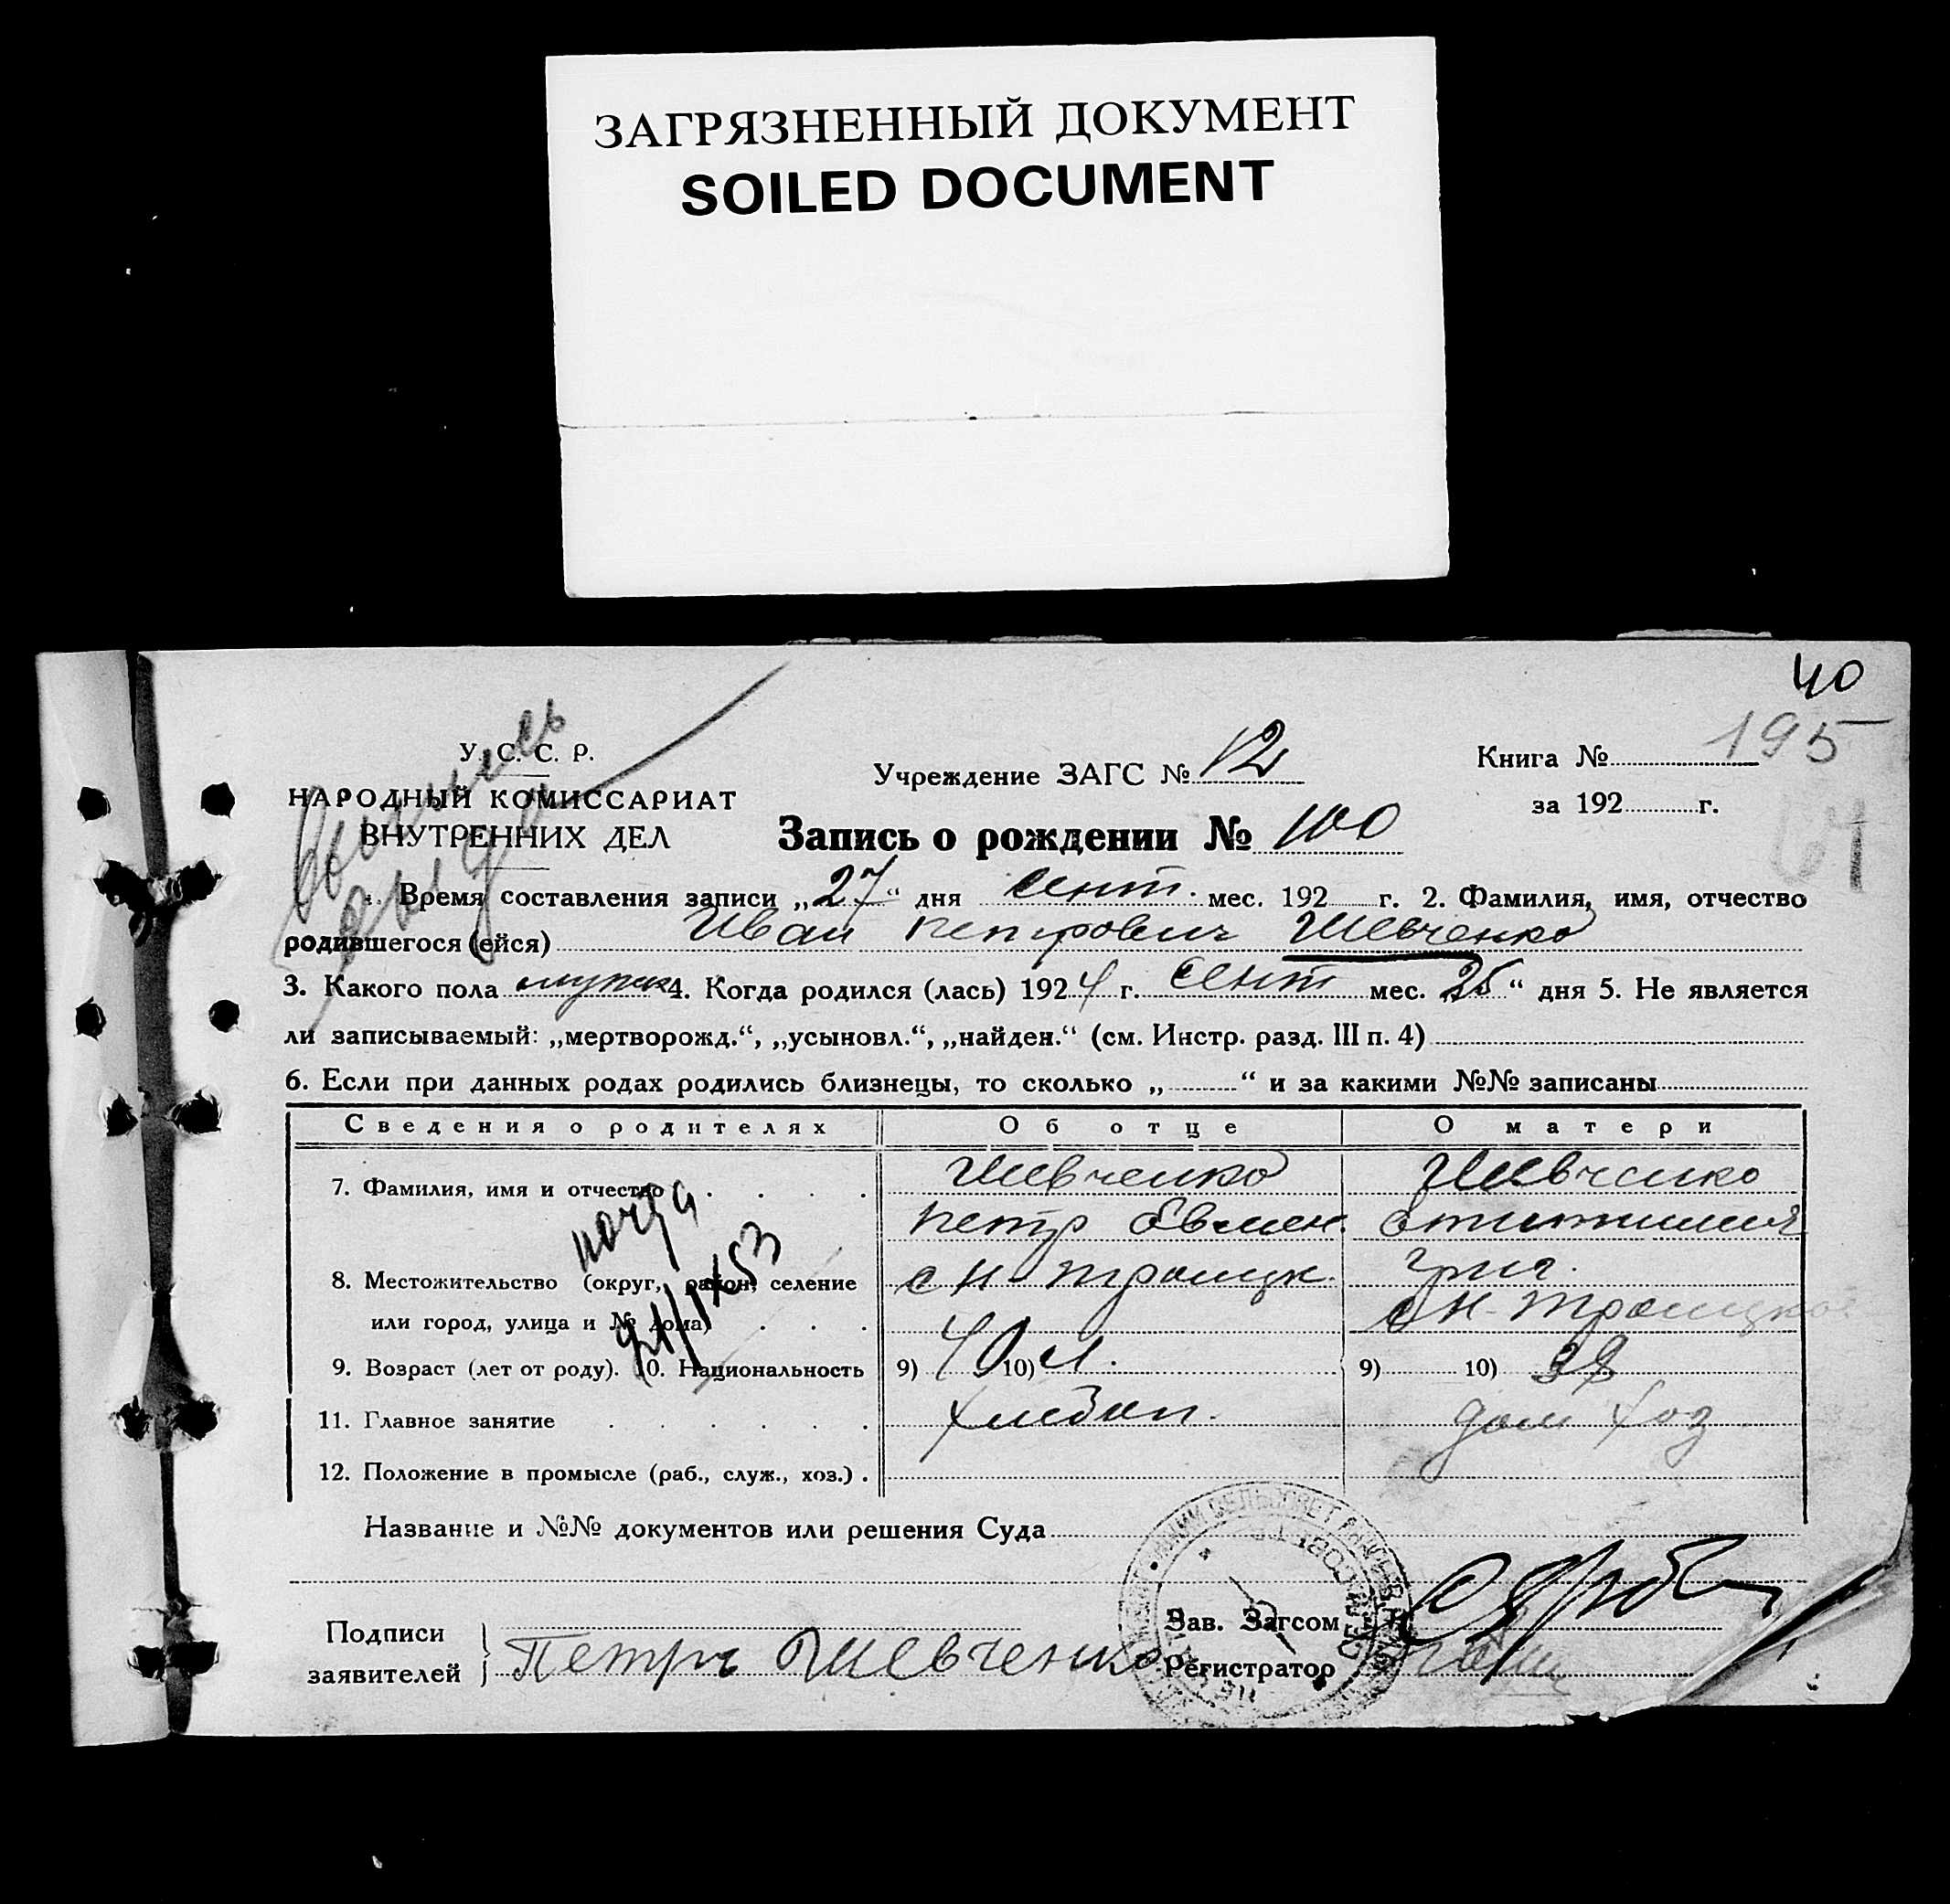 ЗАГРЯЗНЕННЫЙ ДОКУМЕНТ
SOILED DOCUMENT
40
195
У. С. С. Р.
НАРОДНЫЙ КОМИССАРИАТ
ВНУТРЕННИХ ДЕЛ
Учреждение ЗАГС № 12
Книга №
за 192 г.
Запись о рождении № 100
Время составления записи „27“ дня сент. мес. 192 г. 2. Фамилия, имя, отчество
родившегося (ейся) Иван Петрович Шевченко
3. Какого пола мужск 4. Когда родился (лась) 1924 г. сент мес. „25“ дня 5. Не является
ли записываемый: „мертворожд.“, „усыновл.“, „найден.“ (см. Инстр. разд. III п. 4)
6. Если при данных родах родились близнецы, то сколько „ “ и за какими №№ записаны
Сведения о родителях Об отце О матери
7. Фамилия, имя и отчество Шевченко Шевченко
Петр Евмен.
8. Местожительство (округ, район, селение с Н-Троицк. Григ.
или город, улица и № дома) с Н-Троицкое
9. Возраст (лет от роду). 10. Национальность 9) 40 10) 9) 10) 38
11. Главное занятие Хлебоп. дом хоз
12. Положение в промысле (раб., служ., хоз.)
Название и №№ документов или решения Суда
Подписи
заявителей
Петръ Шевченко
Зав. Загсом
Регистратор